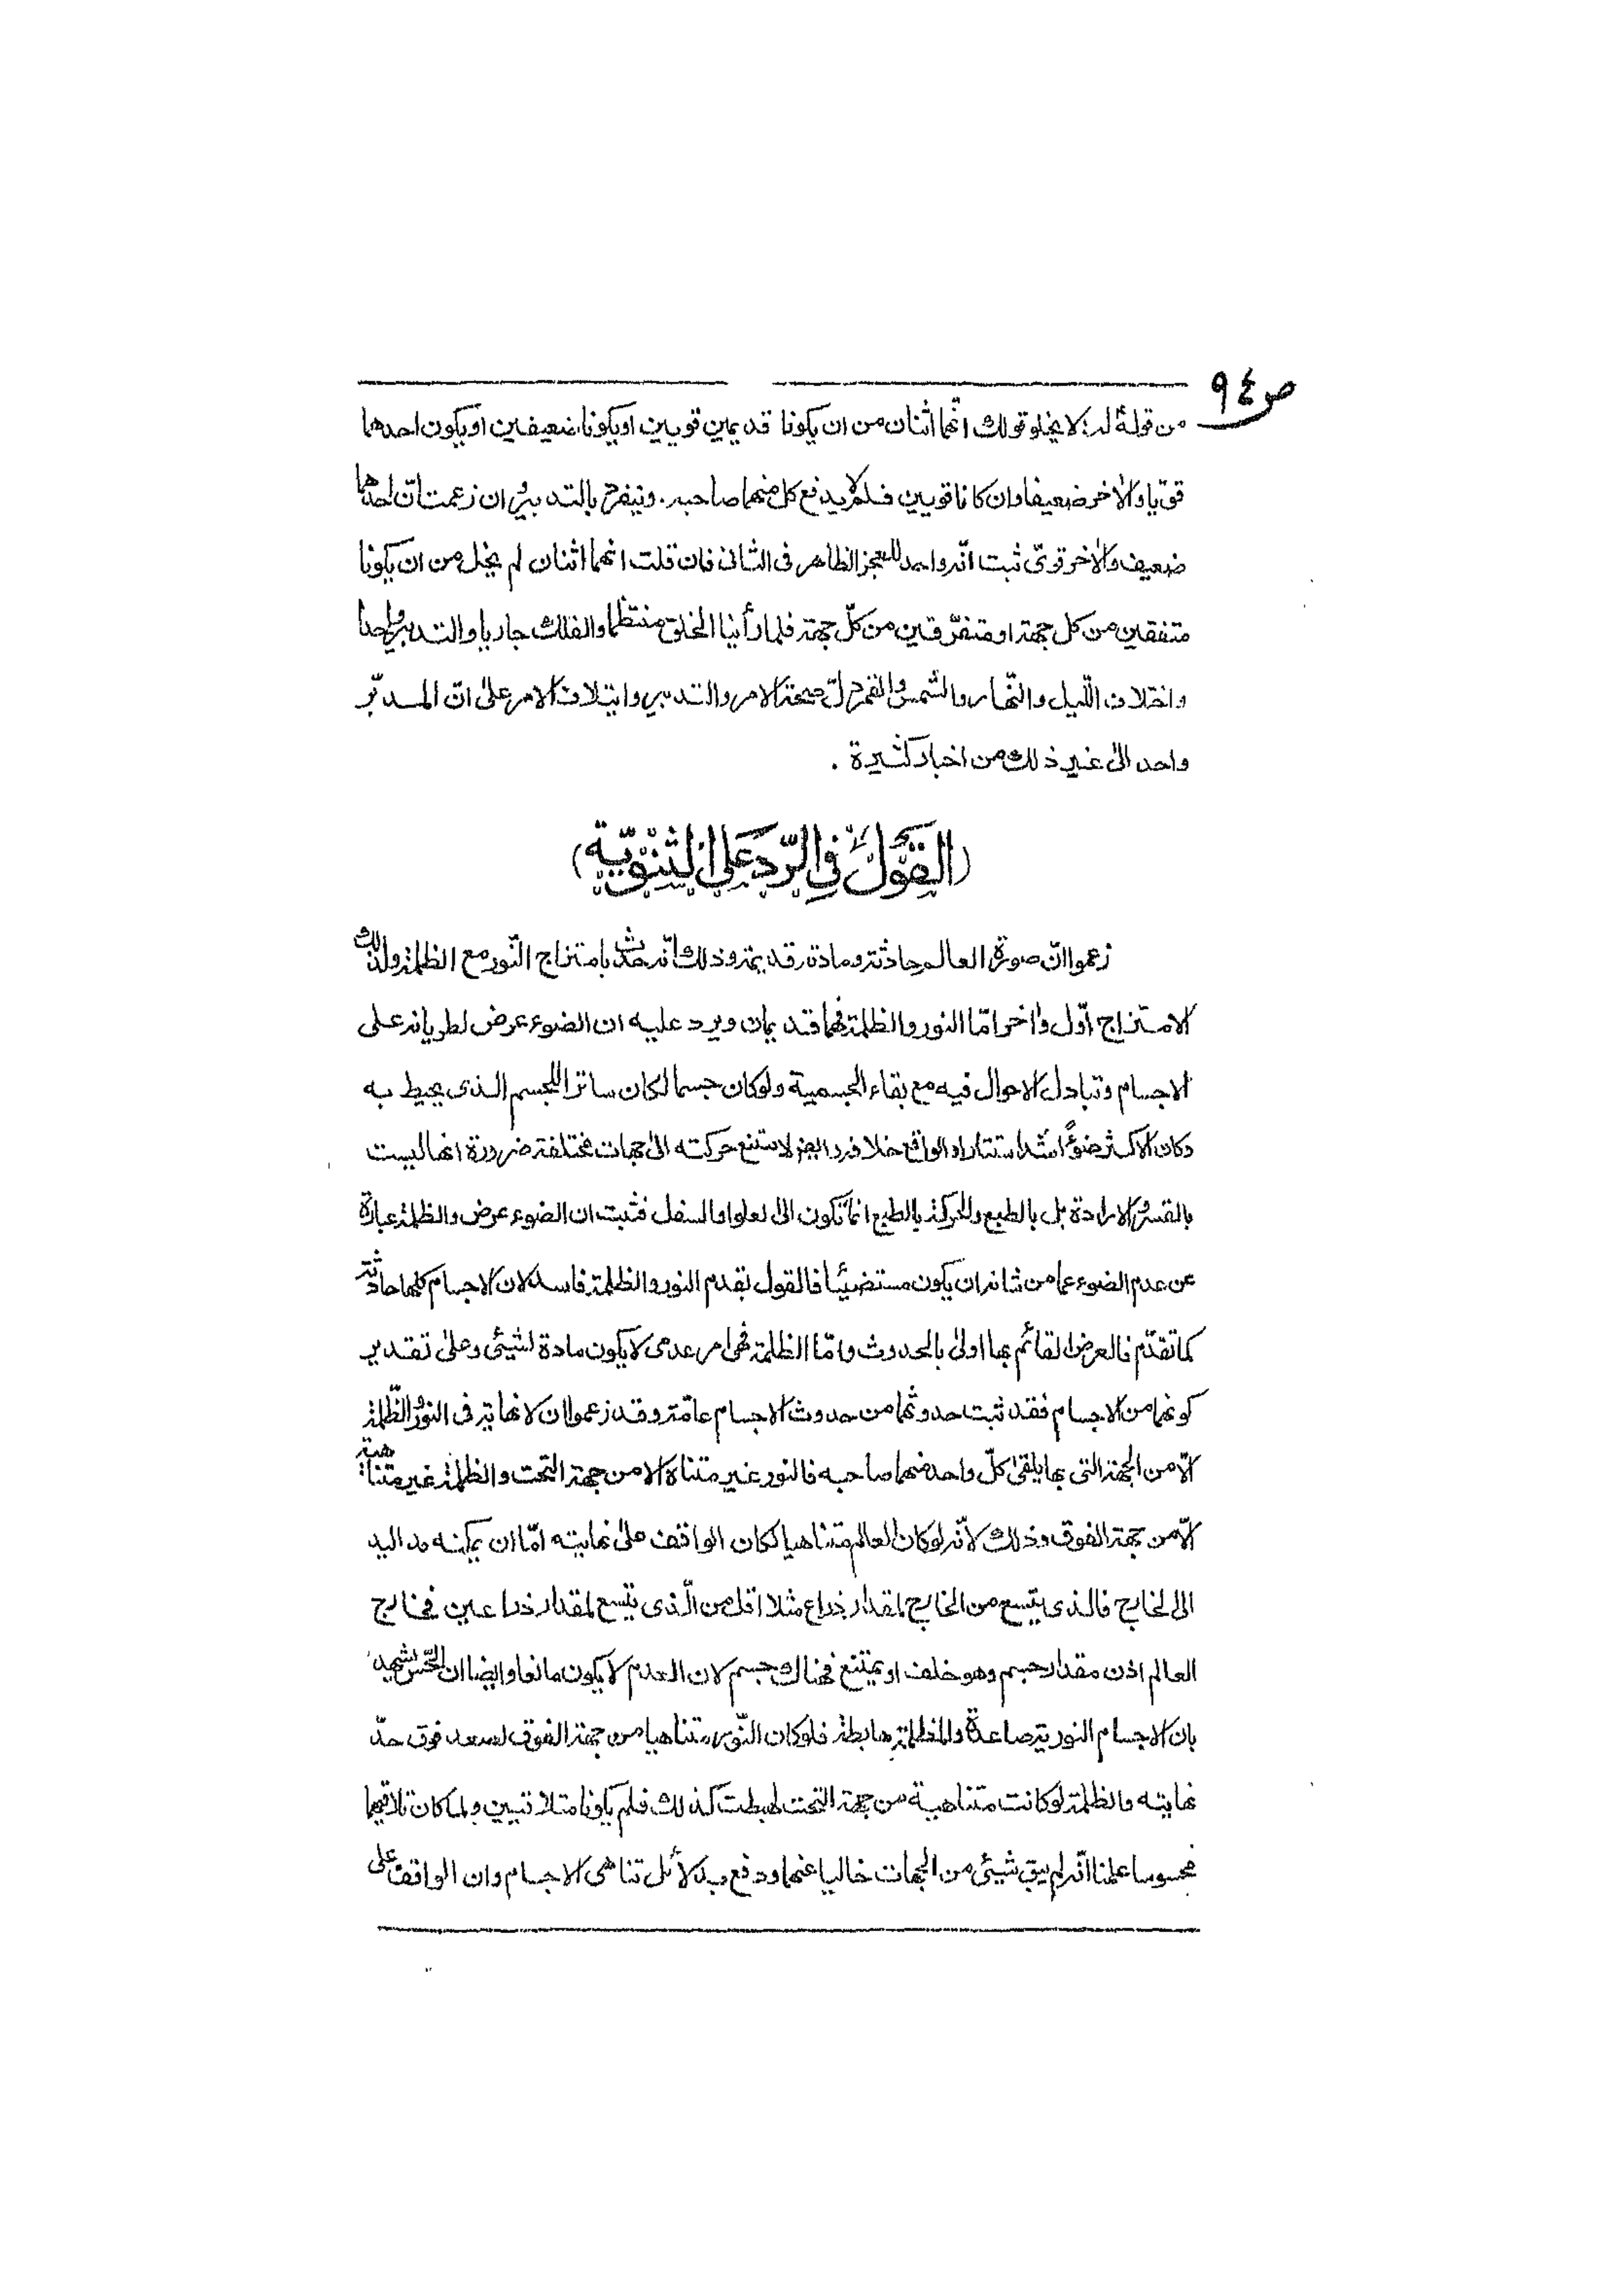 ص ٩٤
من قوله له: لا يخلو قولك انّهما اثنان من ان يكونا قديمين قويين او يكونا ضعيفين او يكون احدهما
قويّا والاخر ضعيفا وان كانا قويين فلم لا يدفع كل منهما صاحبه. ويتفرد بالتدبير وان زعمت انّ احدهما
ضعيف والاخر قويّ ثبت انّه واحد للعجز الظاهر فى الثانى فان قلت انهما اثنان لم يخل من ان يكونا
متفقين من كل جهة او متفرّقين من كلّ جهة فلما رأينا الخلق منتظما والفلك جاريا والتدبير واحدا
واختلاف اللّيل والنّهار والشمس والقمر دلّ صحة الامر والتدبير وايتلاف الامر على انّ المدبّر
واحد الى غير ذلك من اخبار كثيرة .
(القَوْلُ فِي الرَّدِّ عَلَى الثَّنَوِيَّةِ)
زعموا انّ صورة العالم حادثة ومادته قديمة وذلك انّه حدث بامتزاج النّور مع الظلمة ولذلك
الامتزاج اوّل واخر امّا النور والظلمة فهما قديمان ويرد عليه ان الضوء عرض لطريانه على
الاجسام وتبادل الاحوال فيه مع بقاء الجسمية ولو كان جسما لكان ساترا للجسم الذى يحيط به
وكان الاكثر ضوءًا اشد استتارا والواقع خلافه وايضا لامتنع حركته الى جهات مختلفة ضرورة انها ليست
بالقسر والارادة بل بالطبع والحركة بالطبع انما تكون الى العلو او السفل فثبت ان الضوء عرض والظلمة عبارة
عن عدم الضوء عما من شانه ان يكون مستضيئا فالقول بقدم النور والظلمة فاسد لان الاجسام كلها حادثة
كما تقدّم فالعرض القائم بها اولى بالحدوث وامّا الظلمة فهى امر عدمى لا يكون مادة لشيئى وعلى تقدير
كونهما من الاجسام فقد ثبت حدوثهما من حدوث الاجسام عامّة وقد زعموا ان لا نهاية فى النور والظّلمة
الّا من الجهة التى بها يلقى كلّ واحد منهما صاحبه فالنور غير متناه الا من جهة التحت والظلمة غير متناهية
الّا من جهة الفوق وذلك لأنّه لو كان العالم متناهيا لكان الواقف على نهايته امّا ان يمكنه مد اليد
الى الخارج فالذى يتسع من الخارج لمقدار ذراع مثلا اقل من الّذى يتسع لمقدار ذراعين فخارج
العالم اذن مقدار جسم وهو خلف او يمتنع فهناك جسم لان العدم لا يكون مانعا وايضا ان الحسّ يشهد
بان الاجسام النورية صاعدة والمظلمة هابطة فلو كان النّور متناهيا من جهة الفوق لصعد فوق حدّ
نهايته والظلمة لو كانت متناهية من جهة التحت لهبطت كذلك فلم يكونا متلاقيين ولما كان تلاقيهما
محسوسا علمنا انّه لم يبق شيئى من الجهات خاليا عنهما ودفع بدلائل تناهى الاجسام وان الواقف على